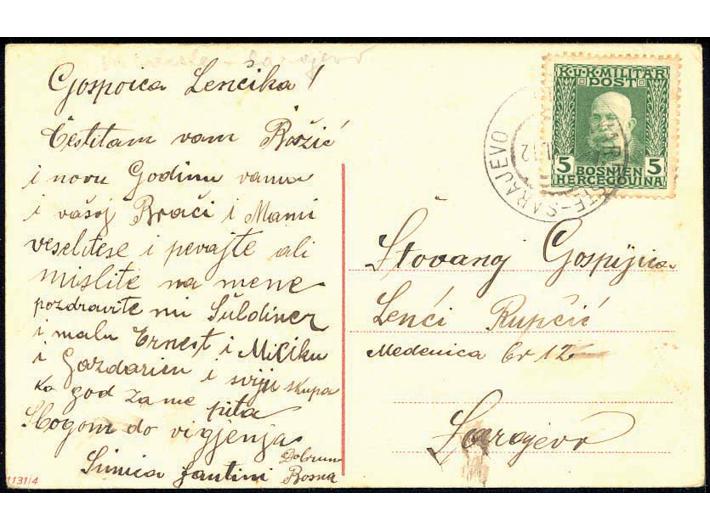 Gospoica Lenčika!
Čestitam vam Božić
i novu Godinu vama
i vašoj Brači i Mami
veselitese i pevajte ali
mislite na mene
pozdravite mi
i malu Ernest i Mičiku
i Gazdaricu i sviju skupa
ko god za me pita
Zbogom do vigjenja
Simica Fantini Dobrun
Bosna
11314
K.u.K. MILITÄR
POST
5 BOSNIEN 5
HERCEGOVINA
SARAJEVO
12
Štovanoj Gospijica
Lenći Rupčić
Medenica br 12
Sarajevo